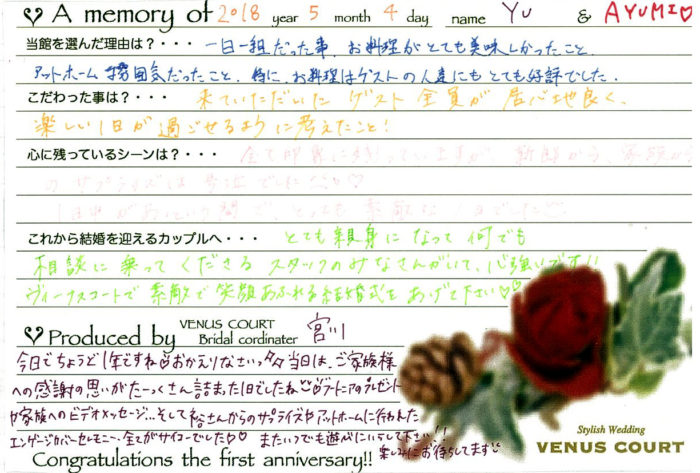 A memory of 2018 year 5 month 4 day name Yu & AYUMI♡
当館を選んだ理由は?・・・ 一日一組だった事、お料理がとても美味しかったこと、
アットホーム雰囲気だったこと、特に、お料理はゲストの人達にもとても好評でした。
こだわった事は?・・・ 来ていただいた ゲスト 全員が 居心地良く、
楽しい1日が 過ごせるように考えたこと!
心に残っているシーンは?・・・ 全て印象に残っていますが、新郎から、家族から
のサプライズは 号泣でした♡
1日中があっという間で、とっても 素敵な 1日でした
これから結婚を迎えるカップルへ・・・ とても 親身に なって 何でも
相談に 乗って くださる スタッフのみなさんがいて、心強いです!!
ヴィーナスコートで 素敵で 笑顔あふれる結婚式を あげて下さい♡♡
Produced by VENUS COURT
Bridal cordinater 宮川
今日でちょうど1年ですね♡おかえりなさいっ 当日は、ご家族様
への感謝の思いがたーっくさん詰まった1日でしたね のプレゼント
や家族へのビデオメッセージ...そして裕さんからのサプライズやアットホームに行われた
エンゲージカバーセレモニー、全てがサイコーでした♡♡ またいつでも遊びにいらして下さい!!
楽しみにお待ちしてます
Congratulations the first anniversary!!
Stylish Wedding
VENUS COURT